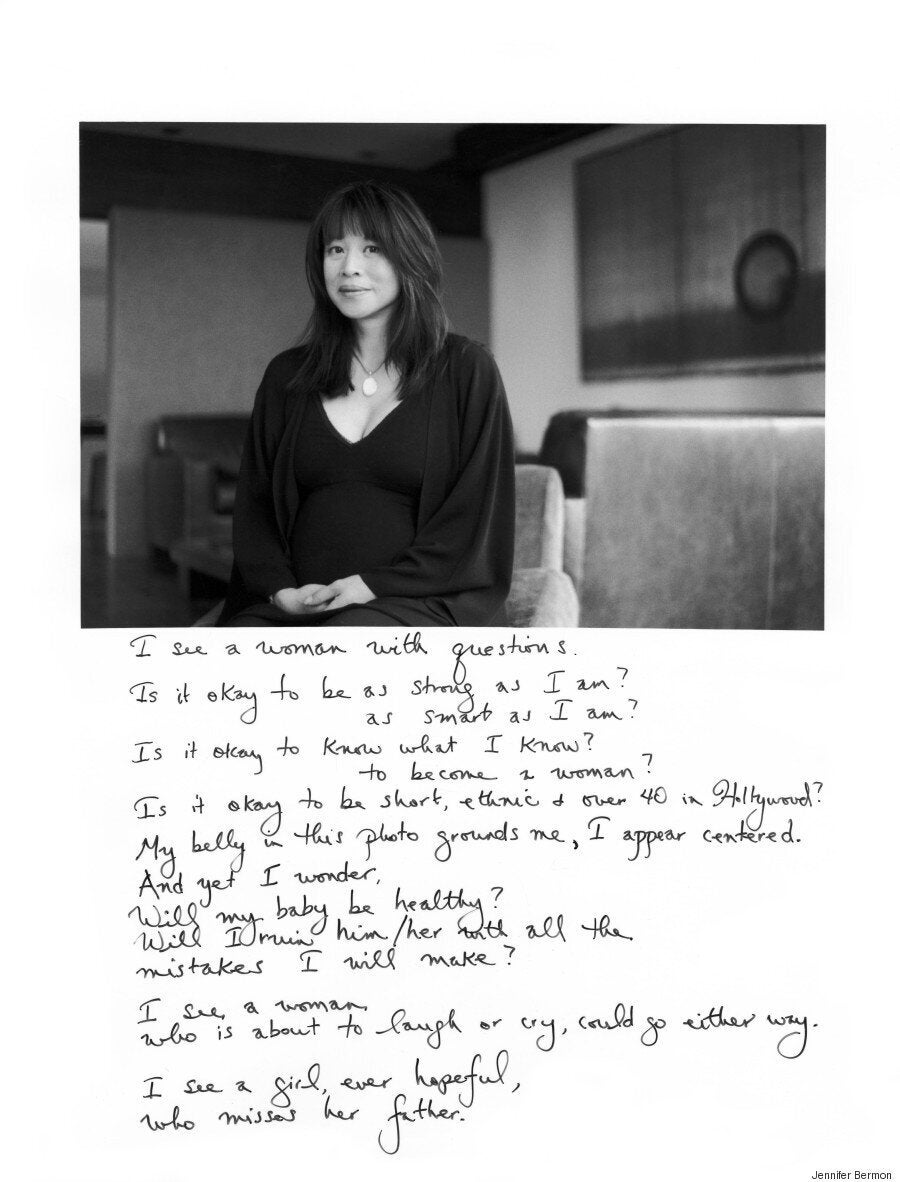 I see a woman with questions.
Is it okay to be as strong as I am?
as smart as I am?
Is it okay to know what I know?
to become a woman?
Is it okay to be short, ethnic & over 40 in Hollywood?
My belly in this photo grounds me, I appear centered.
And yet I wonder,
Will my baby be healthy?
Will I ruin him/her with all the
mistakes I will make?
I see a woman
who is about to laugh or cry, could go either way.
I see a girl, ever hopeful,
who misses her father.
Jennifer Bermon